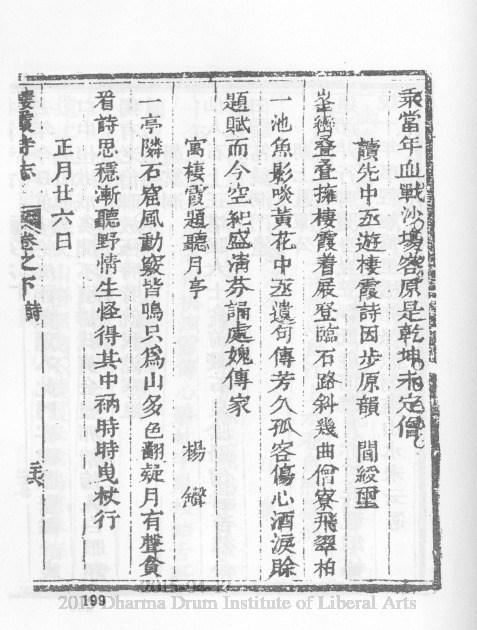 乘當年血戰沙場客原是乾坤未定僧
讀先中丞遊棲霞詩因步原韻　閻經璽
峯巒叠叠擁棲霞着屐登臨石路斜幾曲僧寮飛翠柏
一池魚影啖黃花中丞遺句傳芳久孤客傷心酒淚賒
題賦而今空紀盛淸芬誦處媿傳家
寓棲霞題聽月亭　楊
一亭隣石窟風動竅皆鳴只爲山多色翻疑月有聲貪
看詩思穩漸聽野情生怪得其中衲時時曳杖行
正月廿六日
棲霞寺志　卷之下　詩
199
2015 Dharma Drum Institute of Liberal Arts